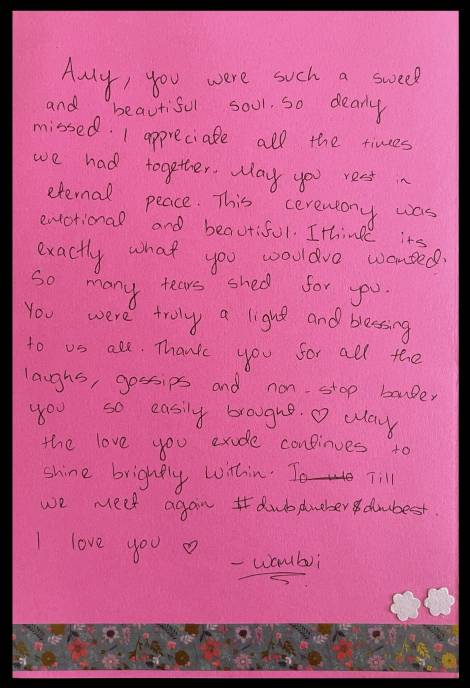 Ally, you were such a sweet
and beautiful soul. So dearly
missed. I appreciate all the times
we had together. May you rest in
eternal peace. This ceremony was
emotional and beautiful. I think its
exactly what you wouldve wanted.
So many tears shed for you.
You were truly a light and blessing
to us all. Thank you for all the
laughs, gossips and non-stop banter
you so easily brought. ♡ May
the love you exude continues to
shine brightly within. Till
we meet again #dumb,dumber&dumbest.
I love you ♡
- Wambui